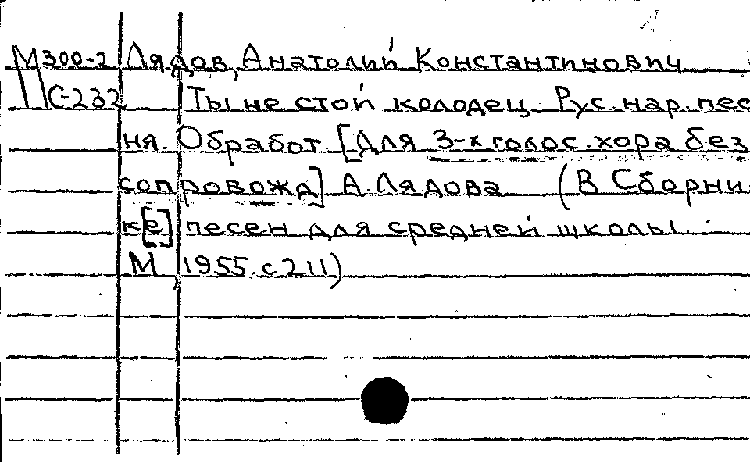 М300-2 Лядов, Анатолий Константинович
С-232 Ты не стой колодец. Рус. нар. пес
ня. Обработ. [для 3-х голос. хора без
сопровожд] А. Лядова (В Сборни
к[е] песен для средней школы.
М 1955. с 211)